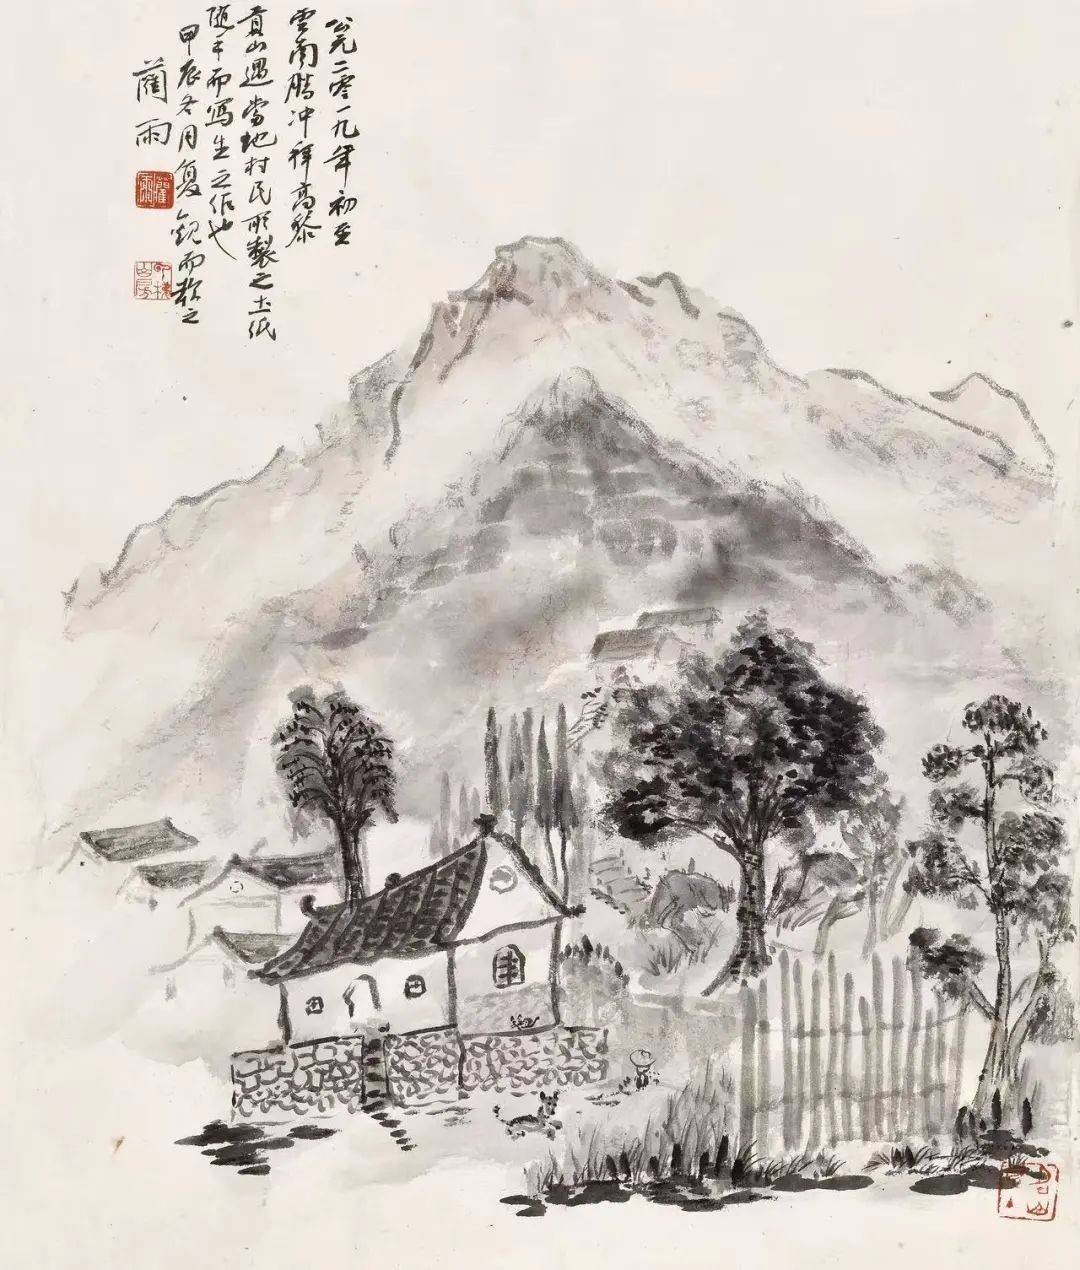 公元二零一九年初至
雲南腾冲拜高黎
貢山遇當地村民所製之土纸
随手而寫生之作也
甲辰冬月复观而款之
藺雨